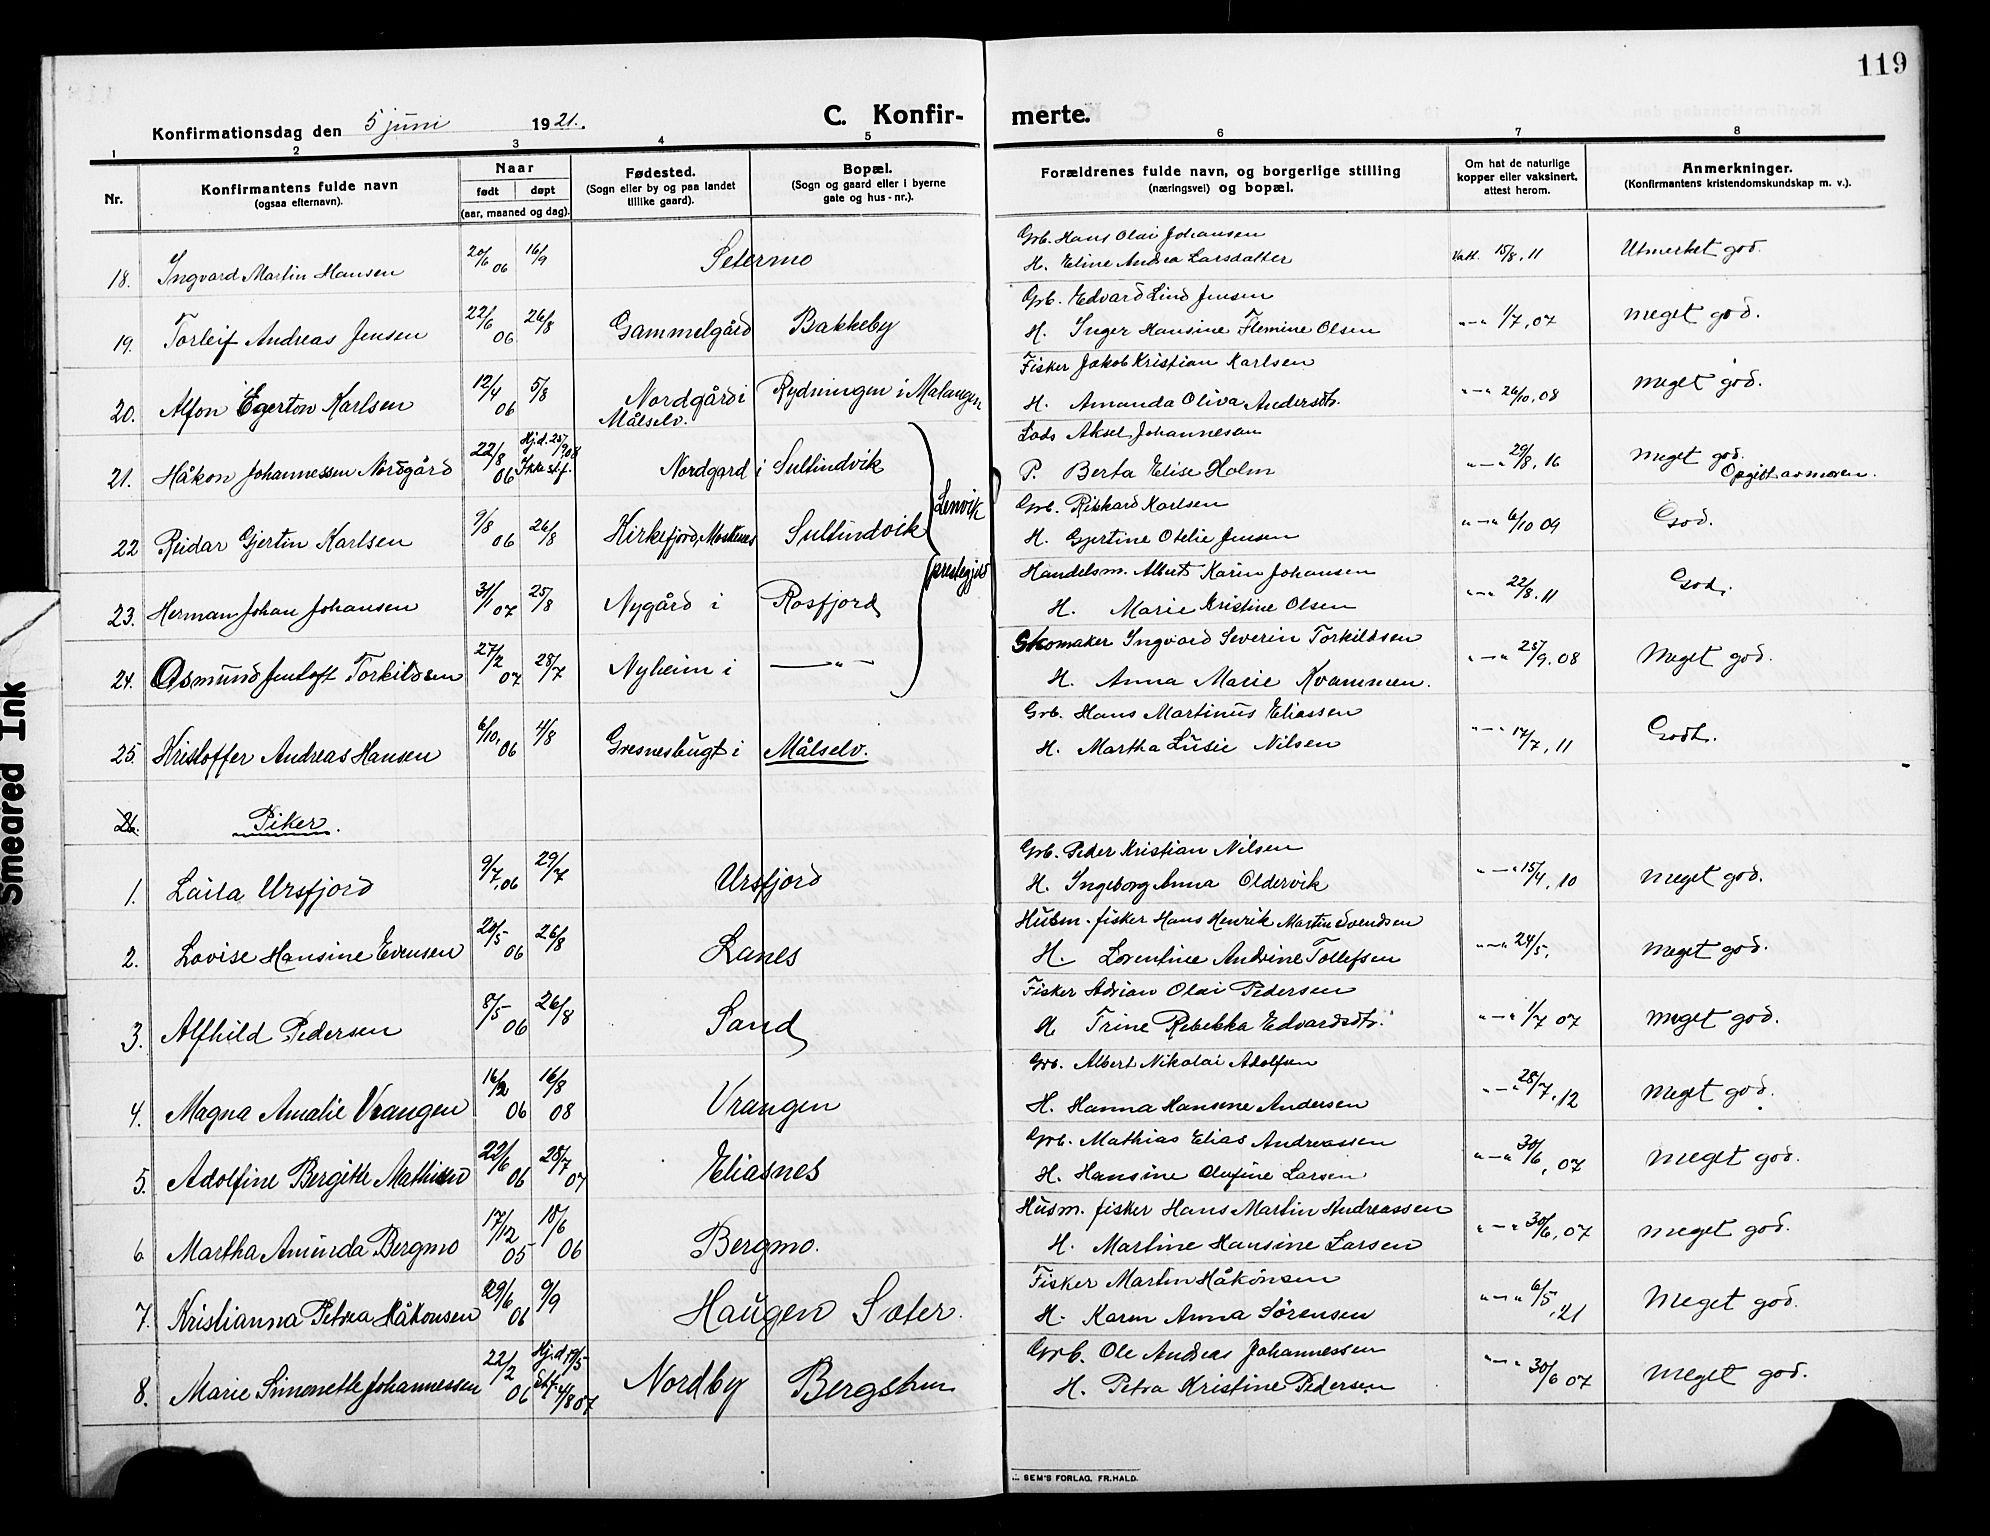 119
Konfirmationsdag den 5 juni 1921.
C. Konfir- merte.
1 2 3 4 5 6 7 8
Nr.
Konfirmantens fulde navn
(ogsaa efternavn).
Naar
født døpt
(aar, maaned og dag).
Fødested.
(Sogn eller by og paa landet
tillike gaard).
Bopæl.
(Sogn og gaard eller i byerne
gate og hus-nr.).
Forældrenes fulde navn, og borgerlige stilling
(næringsvei) og bopæl.
Om hat de naturlige
kopper eller vaksinert,
attest herom.
Anmerkninger.
(Konfirmantens kristendomskundskap m. v.).
Grb. Hans Olai Johansen
18. Ingvard Martin Hansen 20/6 06 16/9 Setermo H. Eline Andrea Larsdatter Vatt. 15/8, 11 Utmerket god.
Grb. Edvard Lind Jensen
19. Torleif Andreas Jensen 22/6 06 26/8 Gammelgård Bakkeby H. Inger Hansine Flemine Olsen "—" 1/7, 07 Meget god.
Fisker Jakob Kristian Karlsen
20. Alfon Egerton Karlsen 12/4 06 5/8 Nordgård i Målselv. Rydningen i Malangen H. Amanda Oliva Andersdtr. "—" 26/10, 08 Meget god.
Lods Aksel Johannesen
21. Håkon Johannessen Nordgård 22/8 06 Hj.d. 25/9 08 Ikke st.f. Nordgard i Sultindvik P. Berta Elise Holm "—" 29/8, 16 Meget god. Opgitt av moren.
Lenvik prestegjeld
Grb. Rikhard Karlsen
22 Reidar Gjertin Karlsen 9/8 06 26/8 Kirkefjord, Moskenes Sultindvik H. Gjertine Otelie Jensen "—" 6/10 09 God.
Handelsm. Albert Karin Johansen
23. Herman Johan Johansen 31/1 07 25/8 Nygård i Rosfjord H. Marie Kristine Olsen "—" 22/8, 11 God.
Skomaker Ingvard Severin Torkildsen
24. Asmund Jentoft Torkildsen 27/2 07 28/7 Nyheim i —"— H. Anna Marie Kvammen. "—" 25/9, 08 Meget god.
Grb. Hans Martinus Eliassen
25. Kristoffer Andreas Hansen 6/10, 06 4/8 Gresnesbugt i Målselv. H. Martha Lusie Nilsen "—" 17/7, 11 Godt.
26. Piker.
Grb. Peder Kristian Nilsen
1. Laila Ursfjord 9/7, 06 29/7 Ursfjord H. Ingeborg Anna Oldervik "—" 15/4, 10 Meget god.
Husm. fisker Hans Henrik Martin Evendsen
2. Lovise Hansine Evensen 20/5 06 26/8 Lanes H. Lorentine Andrine Tollefsen "—" 24/5, Meget god.
Fisker Adrian Olai Pedersen
3. Alfhild Pedersen 8/5 06 26/8 Sand H Trine Rebekka Edvardsdtr. "—" 1/7 07 Meget god.
Grb. Albert Nikolai Adolfsen
4. Magna Amalie Vrangen 16/2 06 16/8 08 Vrangen H. Hanna Hansine Andersen "—" 28/7, 12 Meget god.
Grb. Mathias Elias Andreassen
5. Adolfine Bergitte Mathisen 22/6 06 28/7 07 Eliasnes H. Hansine Olufine Larsen "—" 30/6, 07 Meget god.
Husm. fisker Hans Martin Andreassen
6 Martha Aminda Bergmo 17/12 05 10/6 06 Bergmo. H. Martine Hansine Larsen "—" 30/6, 07 Meget god.
Fisker Martin Håkonsen
7. Kristianna Petrea Håkonsen 29/6 06 9/9 Haugen Sæter. H. Karen Anna Sörensen "—" 6/5, 21 Meget god.
Grb. Ole Andreas Johannessen
8. Marie Simonette Johannessen 22/2 06 Hj.d 19/5 St.f. 4/8 07 Nordby H. Petra Kristine Pedersen "—" 30/6 07 Meget god.
SEM'S FORLAG, FR. HALD.
Smeared Ink